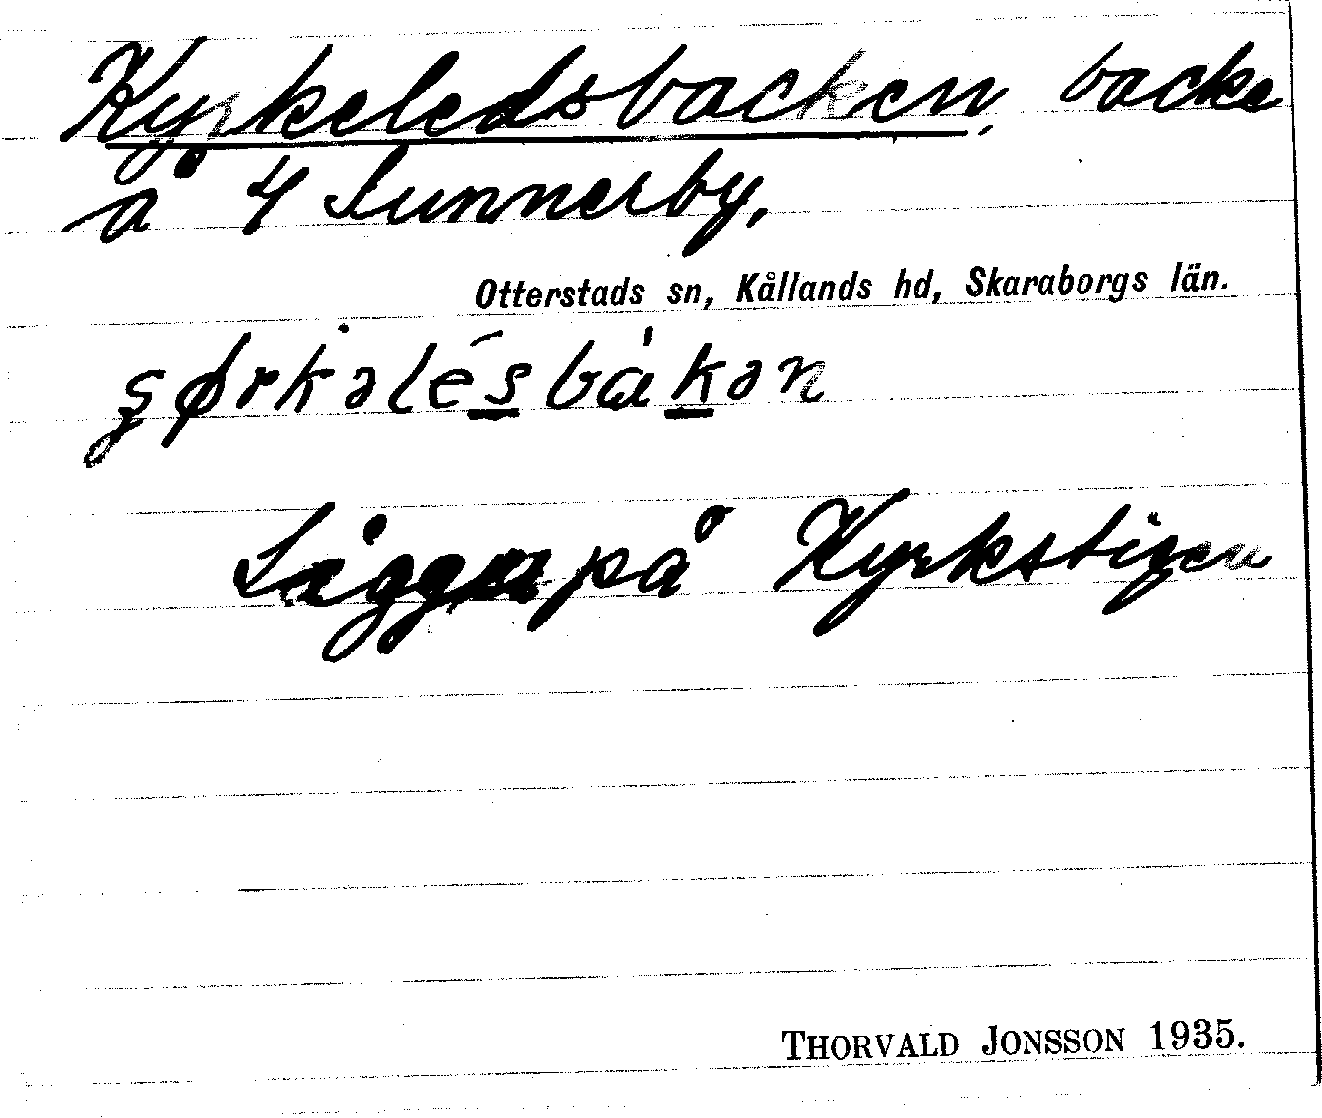 Kyrkeledsbacken, backe
å 4 Sunnerby,
Otterstads sn, Kållands hd, Skaraborgs län.
ʂørkəlésbàkən
på Kyrkstigen
THORVALD JONSSON 1935.